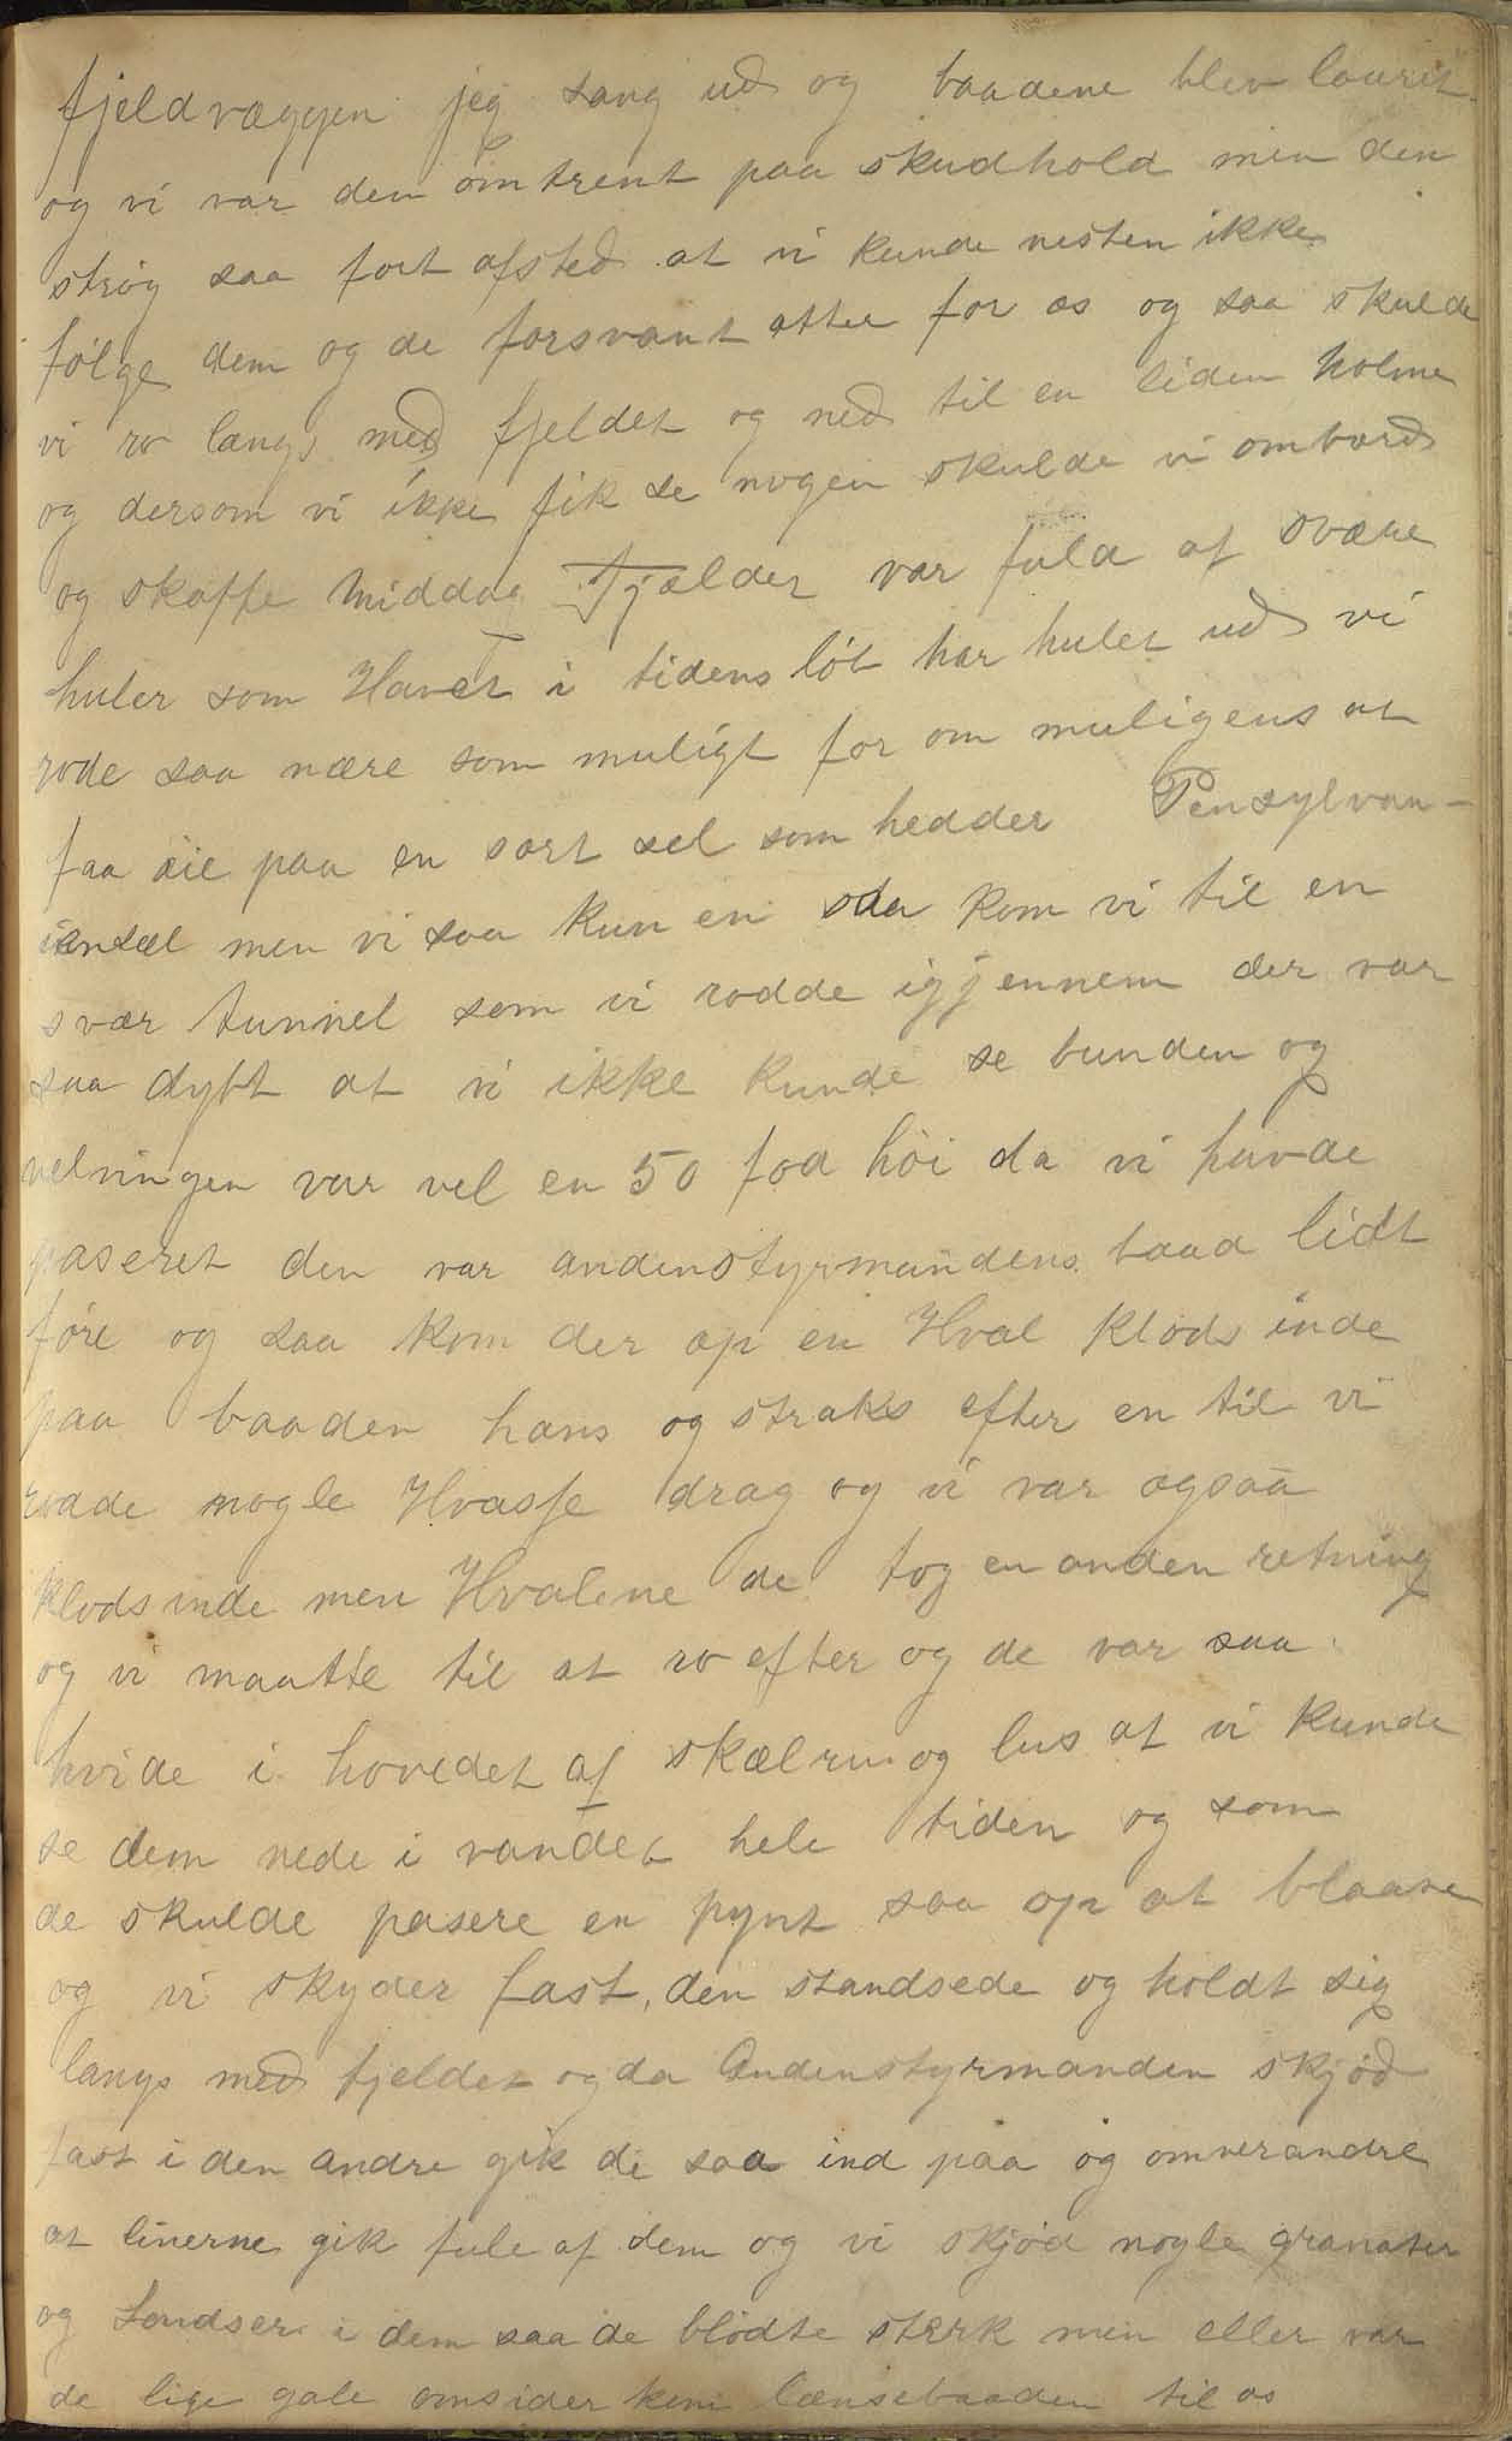 fjeldvæggen jeg sang ud og baadene blev lauret
og vi var den omtrent paa skudhold men den
strøg saa fort afsted at vi kunde nesten ikke
følge dem og de forsvant atter for os og saa skulde
vi ro langs med fjeldet og ned til en liden holme
og dersom vi ikke fik se nogen skulde vi ombord
og skaffe Middag Fjældet var fuld af svære
huler som Havet i tidens løb har hulet ud vi
rode saa nære som muligt for om muligens at
faa øie paa en sort sel som hedder Pensylvan-
iensel men vi saa kun en saa kom vi til en
svær tunnel som vi rodde igjennem der var
saa dybt at vi ikke kunde se bunden og
velvingen var vel en 50 fod høi da vi havde
paseret den var andenstyrmandens baad lidt
føre og saa kom der op en Hval klods inde
paa baaden hans og straks efter en til vi
rodde nogle Hvasse drag og vi var ogsaa
klods inde men Hvalene de tog en anden retning
og vi maatte til at ro efter og de var saa
hvide i hovedet af skælrur og lus at vi kunde
se dem nede i vandet hele tiden og som
de skulde pasere en pynt saa op at blaase
og vi skyder fast, den standsede og holdt sig
langs med fjeldet og da Andenstyrmanden skjød
fast i den andre gik de saa ind paa og omverandre
at linerne gik fule af dem og vi skjød nogle granater
og Landser i dem saa de blødte sterk men eller var
de lige gale omsider kom lænsebaaden til os